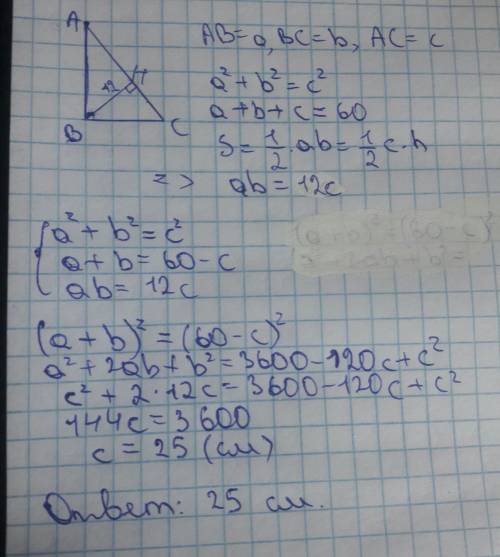 A
H
12
B
C
AB=a, BC=b, AC=c
a²+b²=c²
a+b+c=60
S=1/2·ab=1/2 c·h
=> ab=12c
a²+b²=c²
a+b=60-c
ab=12c
(a+b)²=(60-c)²
a²+2ab+b²=3600-120c+c²
c²+2·12c=3600-120c+c²
144c=3600
c=25 (см)
Ответ: 25 см.